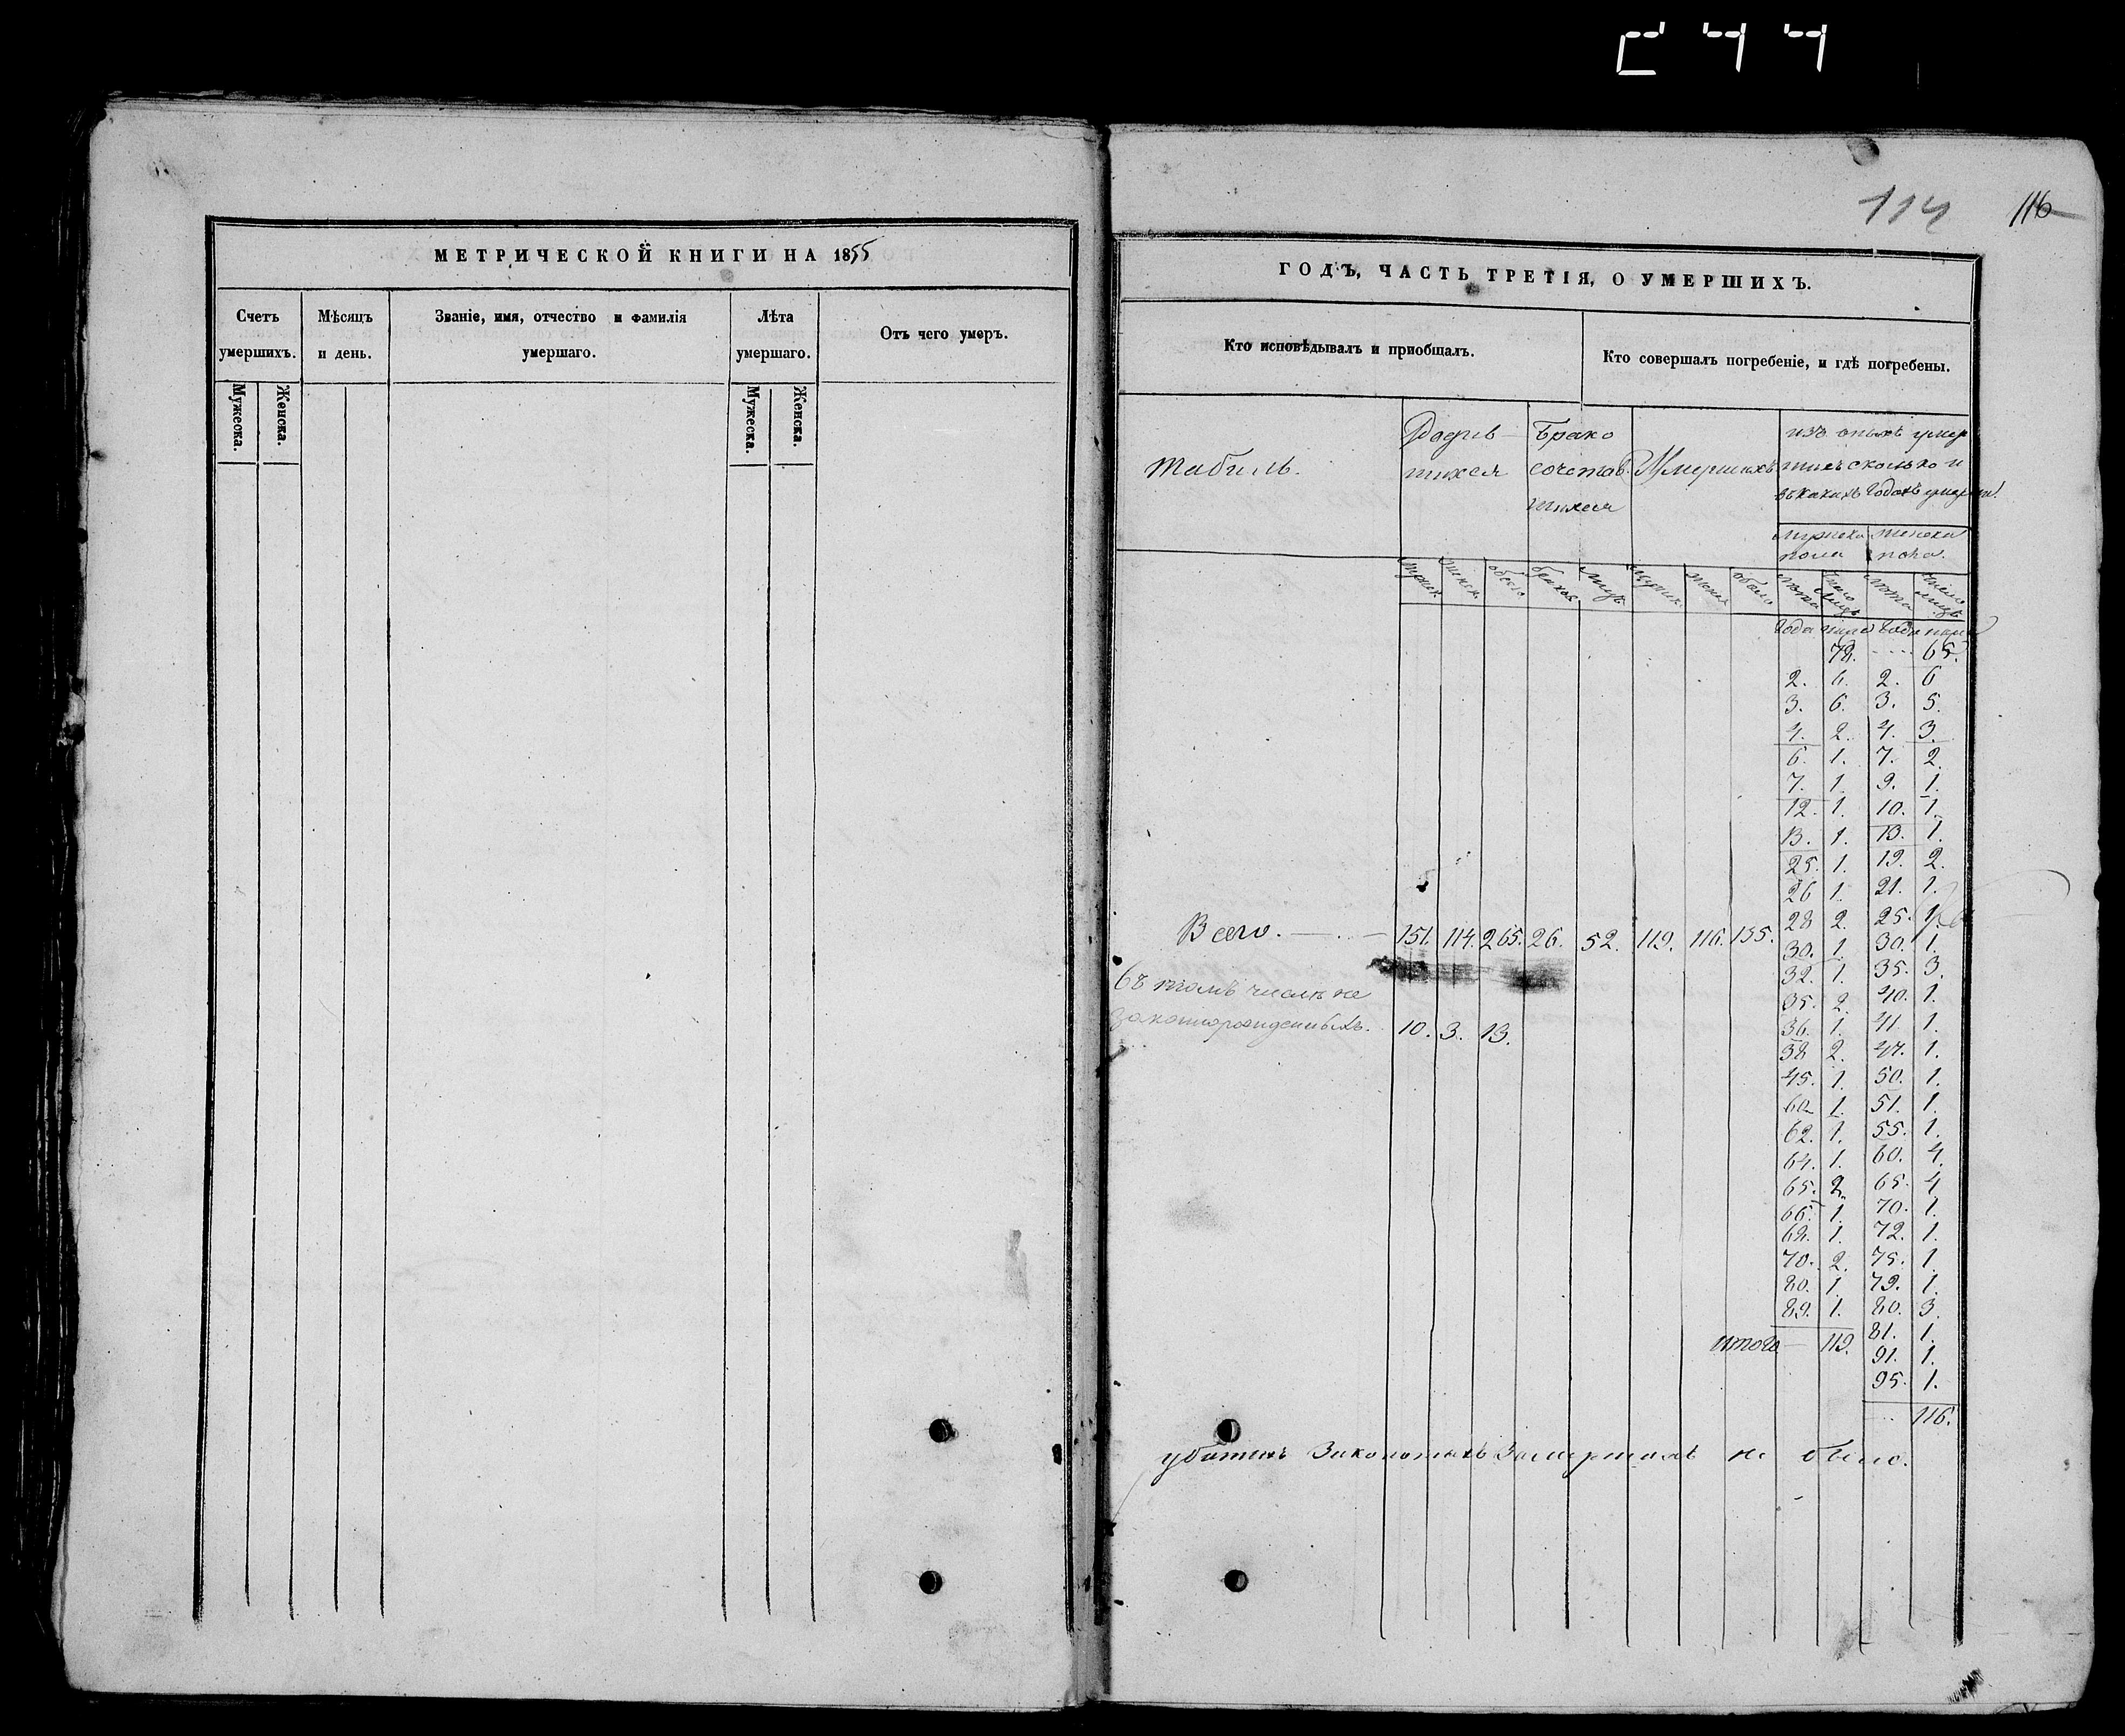 114 116
МЕТРИЧЕСКОЙ КНИГИ НА 1855
Счетъ умершихъ.
Мѣсяцъ и день.
Званіе, имя, отчество и фамилія умершаго.
Лѣта умершаго.
Отъ чего умеръ.
Мужеска. Женска.
Мужеска. Женска.
ГОДЪ, ЧАСТЬ ТРЕТІЯ, О УМЕРШИХЪ.
Кто исповѣдывалъ и приобщалъ.
Кто совершалъ погребеніе, и гдѣ погребены.
Табиль.
Родив-
шихся
Брако
сочетав
шихся
Умершихъ
изъ оныхъ умер
шихъ сколько и
въ какихъ годахъ
мужеска пола
женска пола.
лѣта число лицъ лѣта число лицъ
года года
72. 65.
2. 6. 2. 6
3. 6. 3. 5.
4. 2. 4. 3.
6. 1. 7. 2.
7. 1. 9. 1.
12. 1. 10. 1.
13. 1. 13. 1.
25. 1. 19. 2.
26 1. 21. 1.
28 2. 25. 1.
Всего. 151. 114. 265. 26. 52. 119. 116. 135.
30. 1. 30. 1.
32. 1. 35. 3.
въ томъ числѣ не
35. 2. 40. 1.
законнорожденныхъ. 10. 3. 13.
36. 1. 41. 1.
38 2. 47. 1.
45. 1. 50. 1.
60. 1. 51. 1.
62. 1. 55. 1.
64. 1. 60. 4.
65. 2. 65. 4
66. 1. 70. 1.
68. 1. 72. 1.
70. 2. 75. 1.
80. 1. 79. 1.
89. 1. 80. 3.
итого 119. 81. 1.
91. 1.
95. 1.
116.
убитыхъ замершихъ не было.